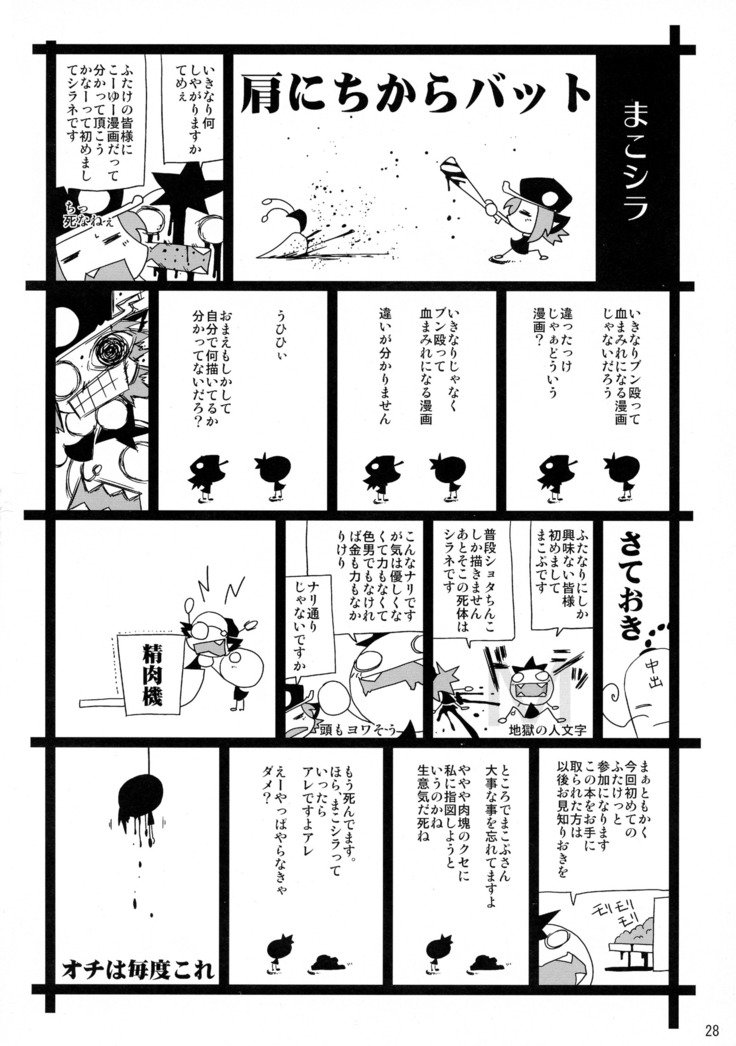 まこシラ
肩にちからバット
いきなり何
しやがりますか
てめぇ
ふたけの皆様に
こーゆー漫画だって
分かって頂こう
かなーって初めまし
てシラネです
ちっ
死なねぇ
いきなりブン殴って
血まみれになる漫画
じゃないだろう
違ったっけ
じゃぁどういう
漫画?
いきなりじゃなく
ブン殴って
血まみれになる漫画
違いが分かりません
うひひぃ
おまえもしかして
自分で何描いてるか
分かってないだろ?
さておき
中出
ふたなりにしか
興味ない皆様
初めまして
まこぶです
普段ショタちんこ
しか描きません
あとそこの死体は
シラネです
地獄の人文字
こんなナリです
が気は優しくな
くて力もなくて
色男でもなけれ
ば金も力もなか
りけり
ナリ通り
じゃないですか
頭もヨワそう
精肉機
まぁともかく
今回初めての
ふたけっと
参加になります
この本をお手に
取られた方は
以後お見知りおきを
モリ
モリ
モリ
ところでまこぶさん
大事な事を忘れてますよ
ややや肉塊のクセに
私に指図しようと
いうのかね
生意気だ死ね
もう死んでます。
ほら、まこシラって
いったら
アレですよアレ
えーやっぱやらなきゃ
ダメ?
オチは毎度これ
28